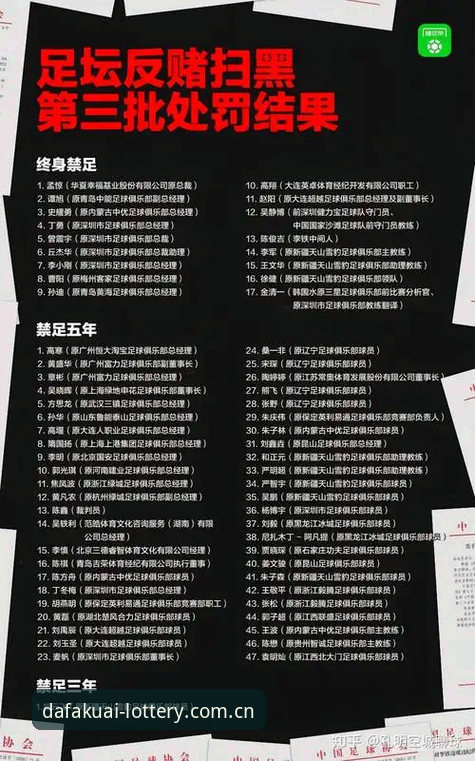 懂球帝
足坛反赌扫黑
第三批处罚结果
终身禁足
1. 孟惊（华夏幸福基业股份有限公司原总裁）
2. 谭旭（原青岛中能足球俱乐部副总经理）
3. 史耀勇（原内蒙古中优足球俱乐部总经理）
4. 丁勇（原深圳市足球俱乐部总经理）
5. 曾雳宇（原深圳市足球俱乐部总裁）
6. 丘杰华（原深圳市足球俱乐部总裁助理）
7. 李小刚（原深圳市足球俱乐部总经理）
8. 曹阳（原梅州客家足球俱乐部总经理）
9. 孙迪（原青岛黄海足球俱乐部总经理）
10. 高翔（大连英卓体育经纪开发有限公司职工）
11. 赵阳（原大连超越足球俱乐部总经理及副董事长）
12. 吴静博（前深圳健力宝足球队守门员、
中国国家沙滩足球队前守门员教练）
13. 陈俊吉（李铁中间人）
14. 李军（原新疆天山雪豹足球俱乐部主教练）
15. 王文华（原新疆天山雪豹足球俱乐部助理教练）
16. 徐健（原新疆天山雪豹足球俱乐部领队）
17. 金清一（韩国水原三星足球俱乐部前比赛分析官、
原深圳市足球俱乐部教练翻译）
禁足五年
1. 高寒（原广州恒大淘宝足球俱乐部总经理）
2. 黄盛华（原广州富力足球俱乐部副董事长）
3. 章彬（原广州富力足球俱乐部总经理）
4. 吴晓晖（原上海绿地申花足球俱乐部董事长）
5. 方思龙（原武汉三镇足球俱乐部总经理）
6. 孙华（原山东鲁能泰山足球俱乐部总经理）
7. 高堰（原大连人职业足球俱乐部总经理）
8. 隋国扬（原上海上港集团足球俱乐部总经理）
9. 李明（原北京国安足球俱乐部总经理）
10. 郭光琪（原河南建业足球俱乐部总经理）
11. 焦凤波（原浙江绿城足球俱乐部总经理）
12. 黄凡农（原杭州绿城足球俱乐部副总经理）
13. 陈鑫（裁判员）
14. 吴轶利（范皓体育文化咨询服务（湖南）有限
公司总经理）
15. 李慎（北京三德睿智体育文化有限公司经理）
16. 陈祺（青岛吉荣体育经纪有限公司执行董事）
17. 陈方舟（原内蒙古中优足球俱乐部球员）
18. 丁冬梅（原深圳市足球俱乐部球员）
19. 胡燕明（原保定英利易通足球俱乐部竞赛部职工）
20. 黄磊（原湖北楚风合力足球俱乐部球员）
21. 刘禹辰（原大连超越足球俱乐部球员）
22. 刘玉圣（原大连超越足球俱乐部球员）
23. 麦帆（原深圳市足球俱乐部董事长）
24. 桑一非（原辽宁足球俱乐部球员）
25. 宋琛（原辽宁足球俱乐部球员）
26. 陶婷婷（原江苏常奥体育发展股份有限公司董事长）
27. 熊飞（原辽宁足球俱乐部球员）
28. 张野（原辽宁足球俱乐部球员）
29. 朱庆伟（原保定英利易通足球俱乐部竞赛部负责人）
30. 朱子林（原内蒙古中优足球俱乐部球员）
31. 刘鑫垚（原昆山足球俱乐部总经理）
32. 和正元（原新疆天山雪豹足球俱乐部助理教练）
33. 严明超（原新疆天山雪豹足球俱乐部助理教练）
34. 严智宇（原新疆天山雪豹足球俱乐部球员）
35. 吴鹏（原新疆天山雪豹足球俱乐部球员）
36. 杨博宇（原深圳市足球俱乐部球员）
37. 刘毅（原黑龙江冰城足球俱乐部球员）
38. 尼扎木丁－阿凡提（原黑龙江冰城足球俱乐部球员）
39. 贾晓琛（原石家庄功夫足球俱乐部球员）
40. 姜文骏（原昆山足球俱乐部球员）
41. 朱子森（原新疆天山雪豹足球俱乐部球员）
42. 王敬平（原浙江毅腾足球俱乐部球员）
43. 张松（原浙江毅腾足球俱乐部球员）
44. 郭子超（原江西联盛足球俱乐部球员）
45. 王波（原内蒙古中优足球俱乐部主教练）
46. 陈懋（原贵州智诚足球俱乐部主教练）
47. 袁明灿（原江西北大门足球俱乐部球员）
禁足三年
dafakuai-lottery.com.cn
中国足球协会